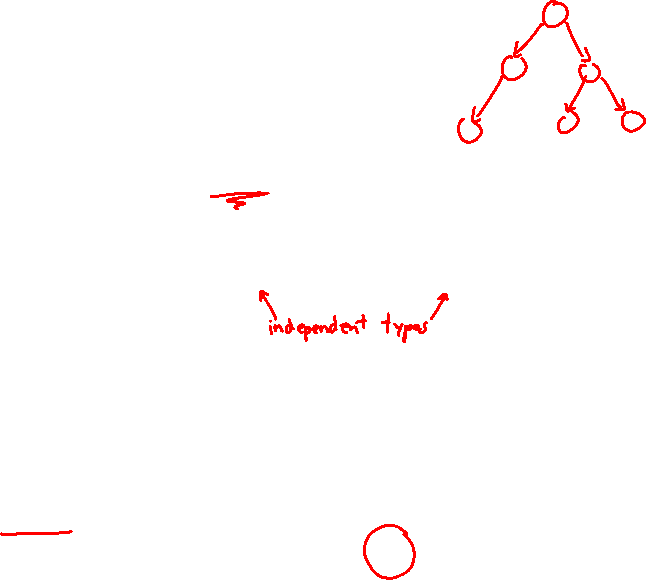 independent types